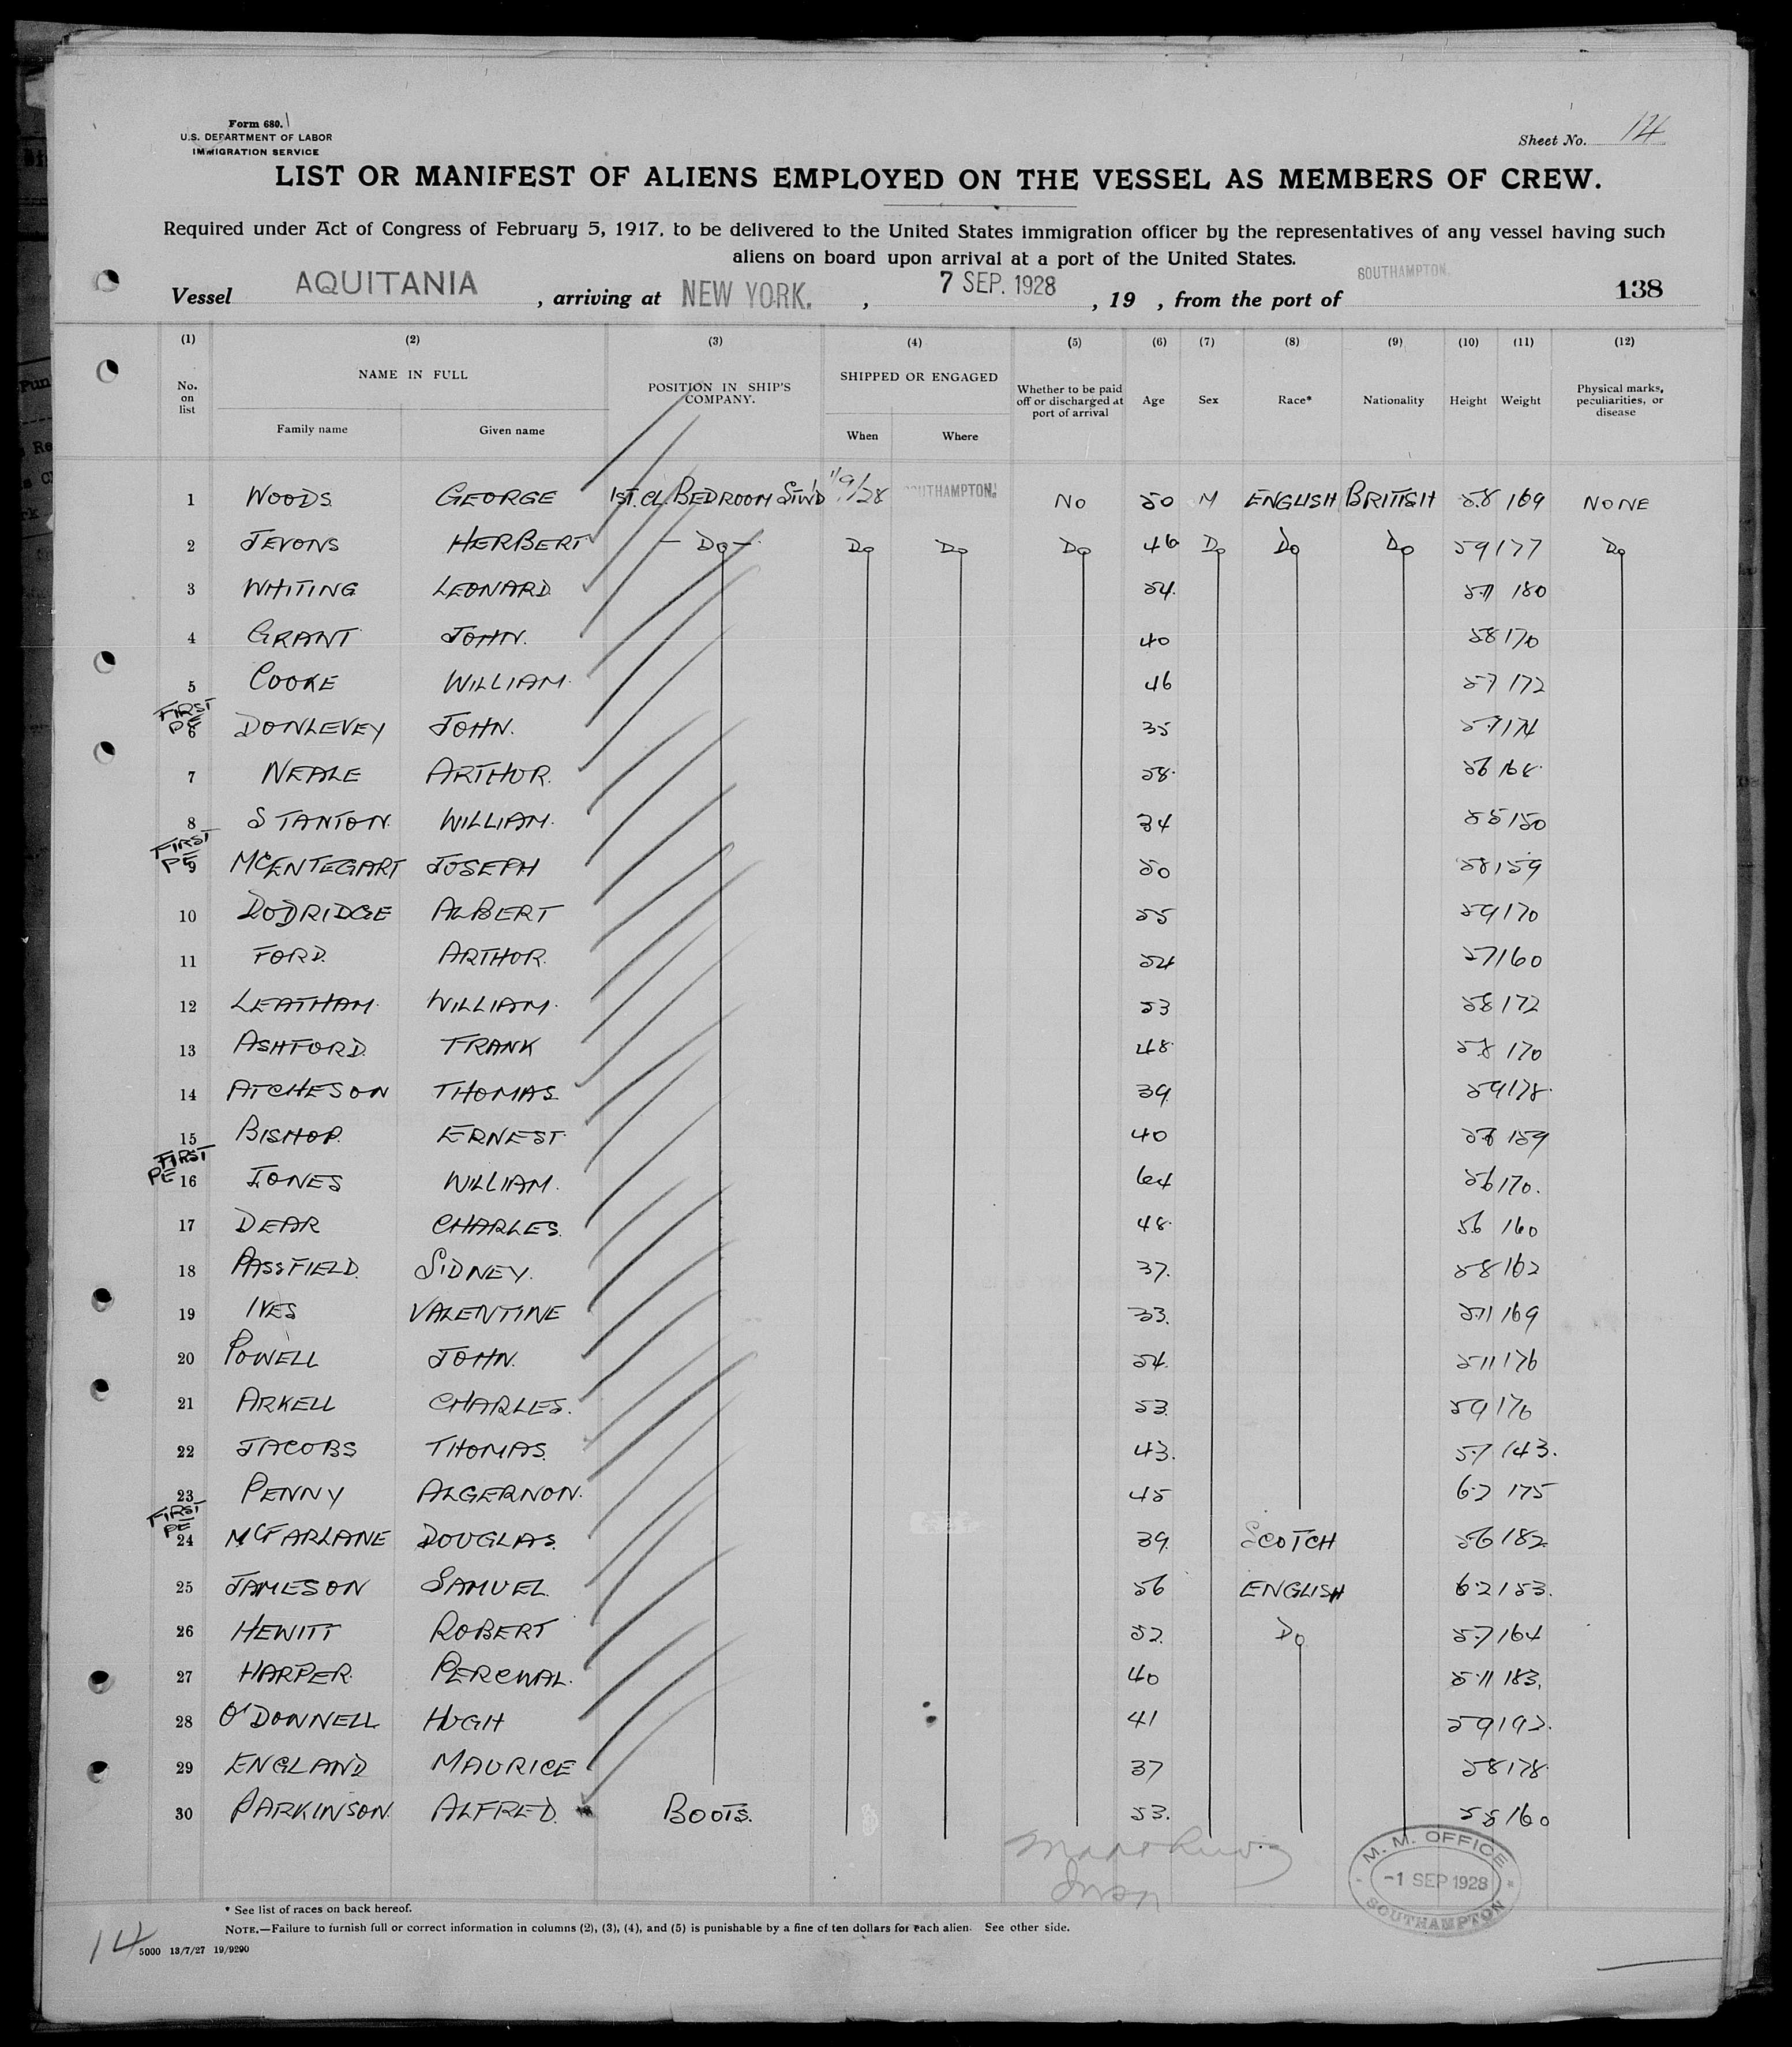 Form 680.
U.S. DEPARTMENT OF LABOR
IMMIGRATION SERVICE
Sheet No. 14
LIST OR MANIFEST OF ALIENS EMPLOYED ON THE VESSEL AS MEMBERS OF CREW.
Required under Act of Congress of February 5, 1917, to be delivered to the United States immigration officer by the representatives of any vessel having such
aliens on board upon arrival at a port of the United States.
Vessel AQUITANIA , arriving at NEW YORK. , 7 SEP. 1928 , 19 , from the port of SOUTHAMPTON. 138
(1) (2) (3) (4) (5) (6) (7) (8) (9) (10) (11) (12)
No. on list NAME IN FULL Family name Given name POSITION IN SHIP'S COMPANY. SHIPPED OR ENGAGED When Where Whether to be paid off or discharged at port of arrival Age Sex Race* Nationality Height Weight Physical marks, peculiarities, or disease
1 WOODS GEORGE 1ST. CL. BEDROOM STW'D 1/9/28 SOUTHAMPTON. NO 50 M ENGLISH BRITISH 5.8 169 NONE
2 JEVONS HERBERT - Do - Do Do Do 46 Do Do Do 59 177 Do
3 WHITING LEONARD 54. 5.11 180
4 GRANT JOHN. 40 58 170
5 COOKE WILLIAM. 46 57 172
FIRST PE 6 DONLEVEY JOHN. 35 5.9 174
7 NEALE ARTHUR. 58. 56 168
8 STANTON WILLIAM. 34 55 150
FIRST PE 9 McENTEGART JOSEPH 50 58 159
10 DODRIDGE ALBERT 55 59 170
11 FORD. ARTHUR. 54 57 160
12 LEATHAM. WILLIAM. 53 58 172
13 ASHFORD. FRANK 48. 5.8 170
14 ATCHESON THOMAS 39. 59 178.
15 BISHOP. ERNEST. 40 56 159
FIRST PE 16 JONES WILLIAM. 64 56 170.
17 DEAR CHARLES. 48. 56 160
18 PASSFIELD. SIDNEY. 37. 58 162
19 IVES VALENTINE 33. 5.11 169
20 POWELL JOHN. 54. 511 176
21 ARKELL CHARLES. 53. 59 170
22 JACOBS THOMAS. 43. 5.7 143.
23 PENNY ALGERNON. 45 6.2 175
FIRST PE 24 McFARLANE DOUGLAS. 39. SCOTCH 56 182
25 JAMESON SAMUEL. 56 ENGLISH 6.2 153.
26 HEWITT ROBERT 52. Do 5.7 164
27 HARPER. PERCIVAL. 40 5.11 183.
28 O'DONNELL HUGH 41 59 192.
29 ENGLAND MAURICE 37 58 178.
30 PARKINSON. ALFRED. BOOTS. 53. 55 160
M. M. OFFICE
-1 SEP 1928
SOUTHAMPTON
* See list of races on back hereof.
NOTE.—Failure to furnish full or correct information in columns (2), (3), (4), and (5) is punishable by a fine of ten dollars for each alien. See other side.
14 5000 13/7/27 19/9290